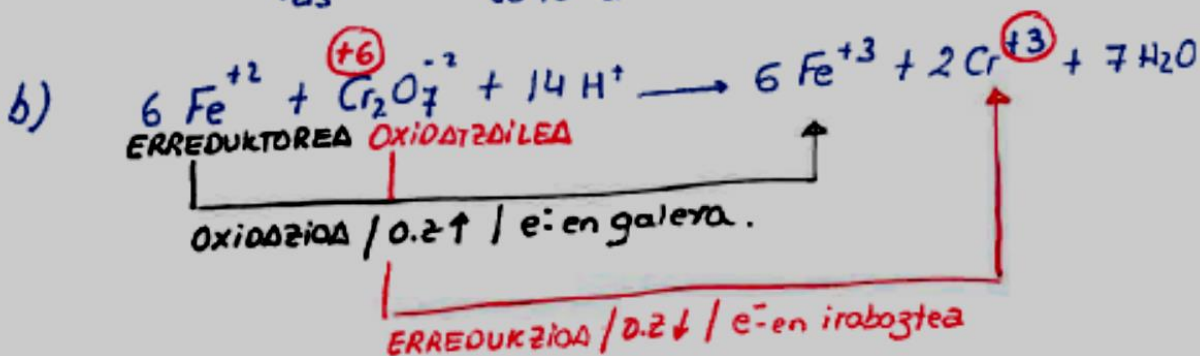 b) 6 Fe⁺² + Cr₂O₇⁻² + 14 H⁺ → 6 Fe⁺³ + 2 Cr⁺³ + 7 H₂O
+6
ERREDUKTOREA OXIDATZAILEA
OXIDAZIOA / O.Z ↑ / e⁻en galera.
ERREDUKZIOA / O.Z ↓ / e⁻en iraboztea